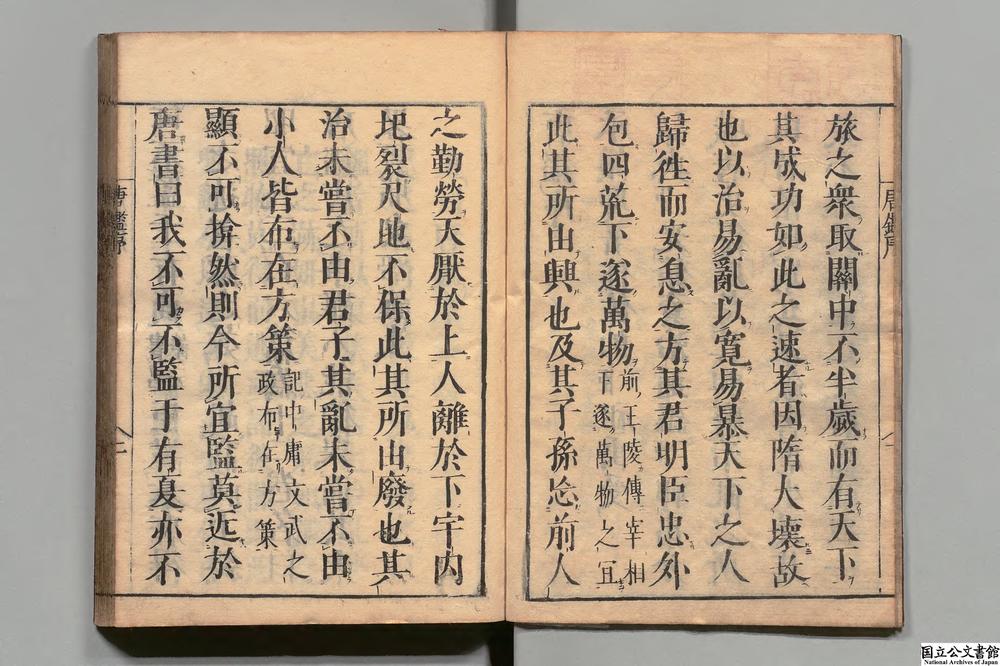 旅之衆取關中不半歲而有天下
其成功如此之速者因隋大壞故
也以治易亂以寛易暴天下之人
歸徃而安息之方其君明臣忠外
包四荒下遂萬物前王陵傳宰相下遂萬物之宜
此其所由興也及其子孫忘前人
之勤勞天厭於上人離於下宇内
圯裂尺地不保此其所由廢也其
治未嘗不由君子其亂未嘗不由
小人皆布在方策記中庸文武之政布在方策
顯不可揜然則今所宜監莫近於
唐書曰我不可不監于有夏亦不
唐鑑序
唐鑑序
国立公文書館
National Archives of Japan